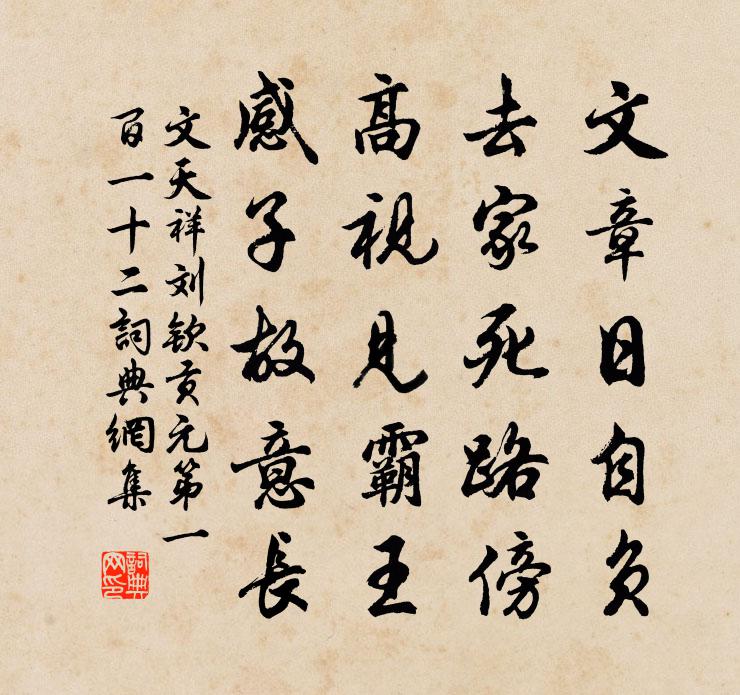 文章日自负
去家死路傍
高視見霸王
感子故意長
文天祥刘欽貢元第一
百一十二詞典網集
詞典网印